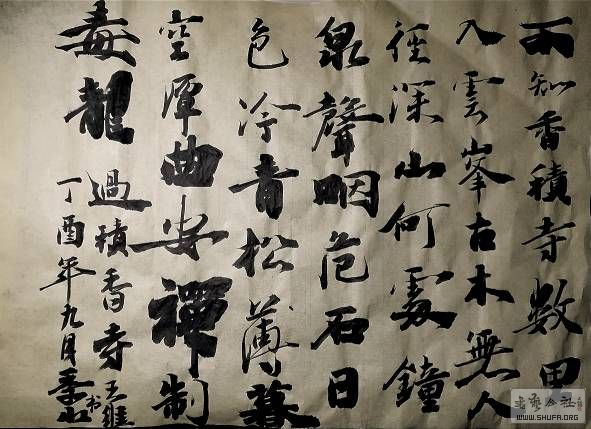 不知香積寺數里
入雲峯古木無人
徑深山何處鐘
泉聲咽危石日
色冷青松薄暮
空潭曲安禪制
毒龍
過積香寺 王維
丁酉年九月
書藝公社
WWW.SHUFA.ORG